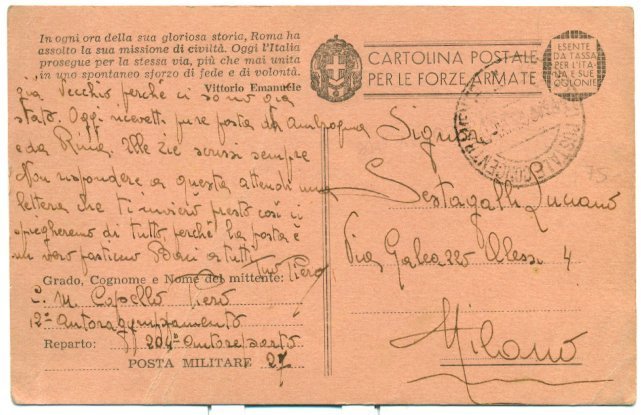 In ogni ora della sua gloriosa storia, Roma ha
assolto la sua missione di civiltà. Oggi l'Italia
prosegue per la stessa via, più che mai unita
in uno spontaneo sforzo di fede e di volontà.
Vittorio Emanuele
già vecchio perché ci sono già
stato. Oggi ricevetti pure posta da
e da Rina. Alle zie scrissi sempre
Non rispondere a questa attendi una
lettera che ti invierò presto così ci
spiegheremo di tutto perché la posta è
un vero pasticcio Baci a tutti
tuo Piero
Grado, Cognome e Nome del mittente:
C. M. Capello Piero
12° Autoraggruppamento
Reparto: 204° autoreparto
POSTA MILITARE 27
CARTOLINA POSTALE
PER LE FORZE ARMATE
ESENTE
DA TASSA
PER L'ITA-
LIA E SUE
COLONIE
POSTA
CONCENTR
Signor
Sestagalli Luciano
Via Galeazzo Alessi 4
Milano
75